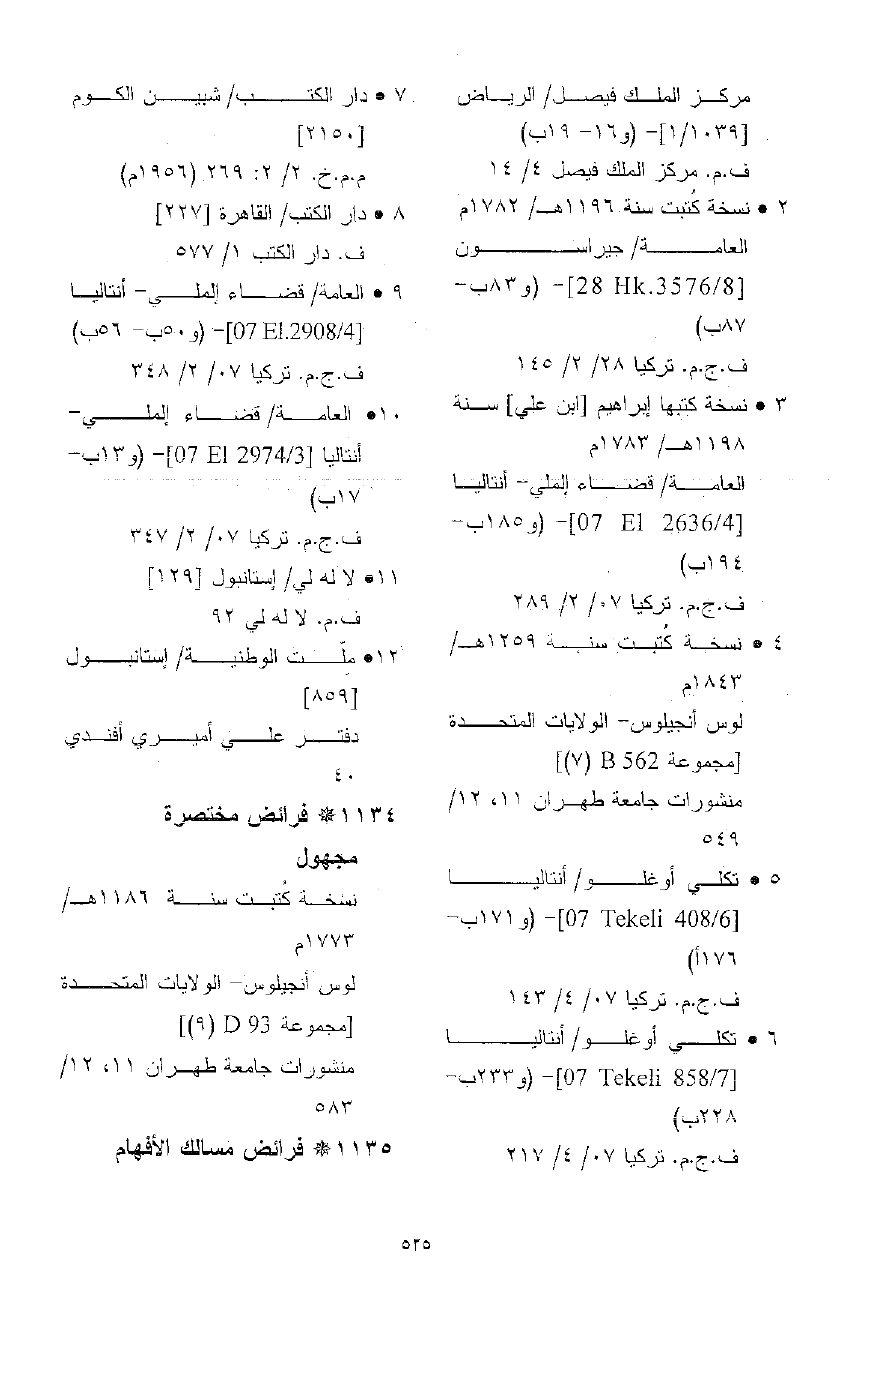 مركز الملك فيصل/ الرياض
[١/١٠٣٩]- (و١٦- ١٩ب)
ف.م. مركز الملك فيصل ٤/ ١٤
٢ • نسخة كُتبت سنة ١١٩٦هـ/ ١٧٨٢م
العامة/ جيراسون
[28 Hk.3576/8]- (و٨٣ب-
٨٧ب)
ف.ج.م. تركيا ٢٨/ ٢/ ١٤٥
٣ • نسخة كتبها إبراهيم [ابن علي] سنة
١١٩٨هـ/ ١٧٨٣م
العامة/ قضاء إلملي- أنتاليا
[07 El 2636/4]- (و١٨٥ب-
١٩٤ب)
ف.ج.م. تركيا ٠٧/ ٢/ ٢٨٩
٤ • نسخة كُتبت سنة ١٢٥٩هـ/
١٨٤٣م
لوس أنجيلوس- الولايات المتحدة
[مجموعة B 562 (٧)]
منشورات جامعة طهران ١١، ١٢/
٥٤٩
٥ • تكلي أوغلو/ أنتاليا
[07 Tekeli 408/6]- (و١٧١ب-
١٧٦أ)
ف.ج.م. تركيا ٠٧/ ٤/ ١٤٣
٦ • تكلي أوغلو/ أنتاليا
[07 Tekeli 858/7]- (و٢٣٣ب-
٢٢٨ب)
ف.ج.م. تركيا ٠٧/ ٤/ ٢١٧
٧ • دار الكتب/ شبين الكوم
[٢١٥٠]
م.م.خ. ٢/ ٢: ٢٦٩ (١٩٥٦م)
٨ • دار الكتب/ القاهرة [٢٢٧]
ف. دار الكتب ١/ ٥٧٧
٩ • العامة/ قضاء إلملي- أنتاليا
[07 El.2908/4]- (و٥٠ب- ٥٦ب)
ف.ج.م. تركيا ٠٧/ ٢/ ٣٤٨
١٠• العامة/ قضاء إلملي-
أنتاليا [07 El 2974/3]- (و١٣ب-
١٧ب)
ف.ج.م. تركيا ٠٧/ ٢/ ٣٤٧
١١• لا له لي/ إستانبول [١٢٩]
ف.م. لا له لي ٩٢
١٢• ملّت الوطنية/ إستانبول
[٨٥٩]
دفتر علي أميري أفندي
٤٠
١١٣٤* فرائض مختصرة
مجهول
نسخة كُتبت سنة ١١٨٦هـ/
١٧٧٣م
لوس أنجيلوس- الولايات المتحدة
[مجموعة D 93 (٩)]
منشورات جامعة طهران ١١، ١٢/
٥٨٣
١١٣٥* فرائض مسالك الأفهام
٥٢٥